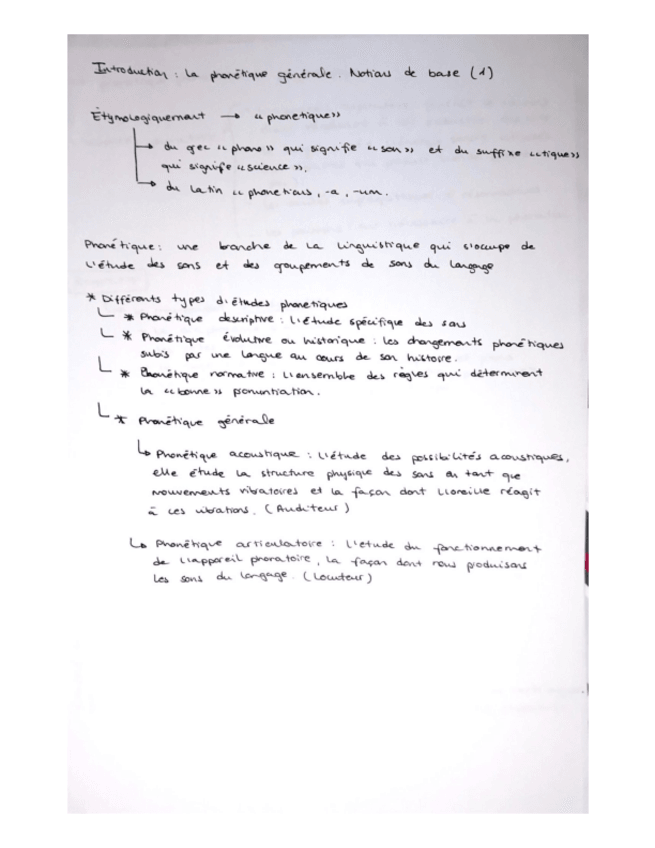 Introduction : La phonétique générale. Notions de base (1)
Étymologiquement → «phonetique»
→ du grec «phono» qui signifie «son» et du suffixe «tique»
qui signifie «science».
→ du latin «phoneticus, -a, -um.
Phonétique : une branche de la linguistique qui s'occupe de
l'étude des sons et des groupements de sons du langage
* Différents types d'études phonetiques
* Phonétique descriptive : l'étude spécifique des sons
* Phonétique évolutive ou historique : les changements phonétiques
subis par une langue au cours de son histoire.
* Phonétique normative : l'ensemble des règles qui déterminent
la «bonne» pronuntiation.
* Phonétique générale
↳ Phonétique acoustique : l'étude des possibilités acoustiques,
elle étude la structure physique des sons en tant que
mouvements vibratoires et la façon dont l'oreille réagit
à ces vibrations. (Auditeur)
↳ Phonétique articulatoire : l'etude du fonctionnement
de l'appareil phonatoire, la façon dont nous produisons
les sons du langage. (Locuteur)